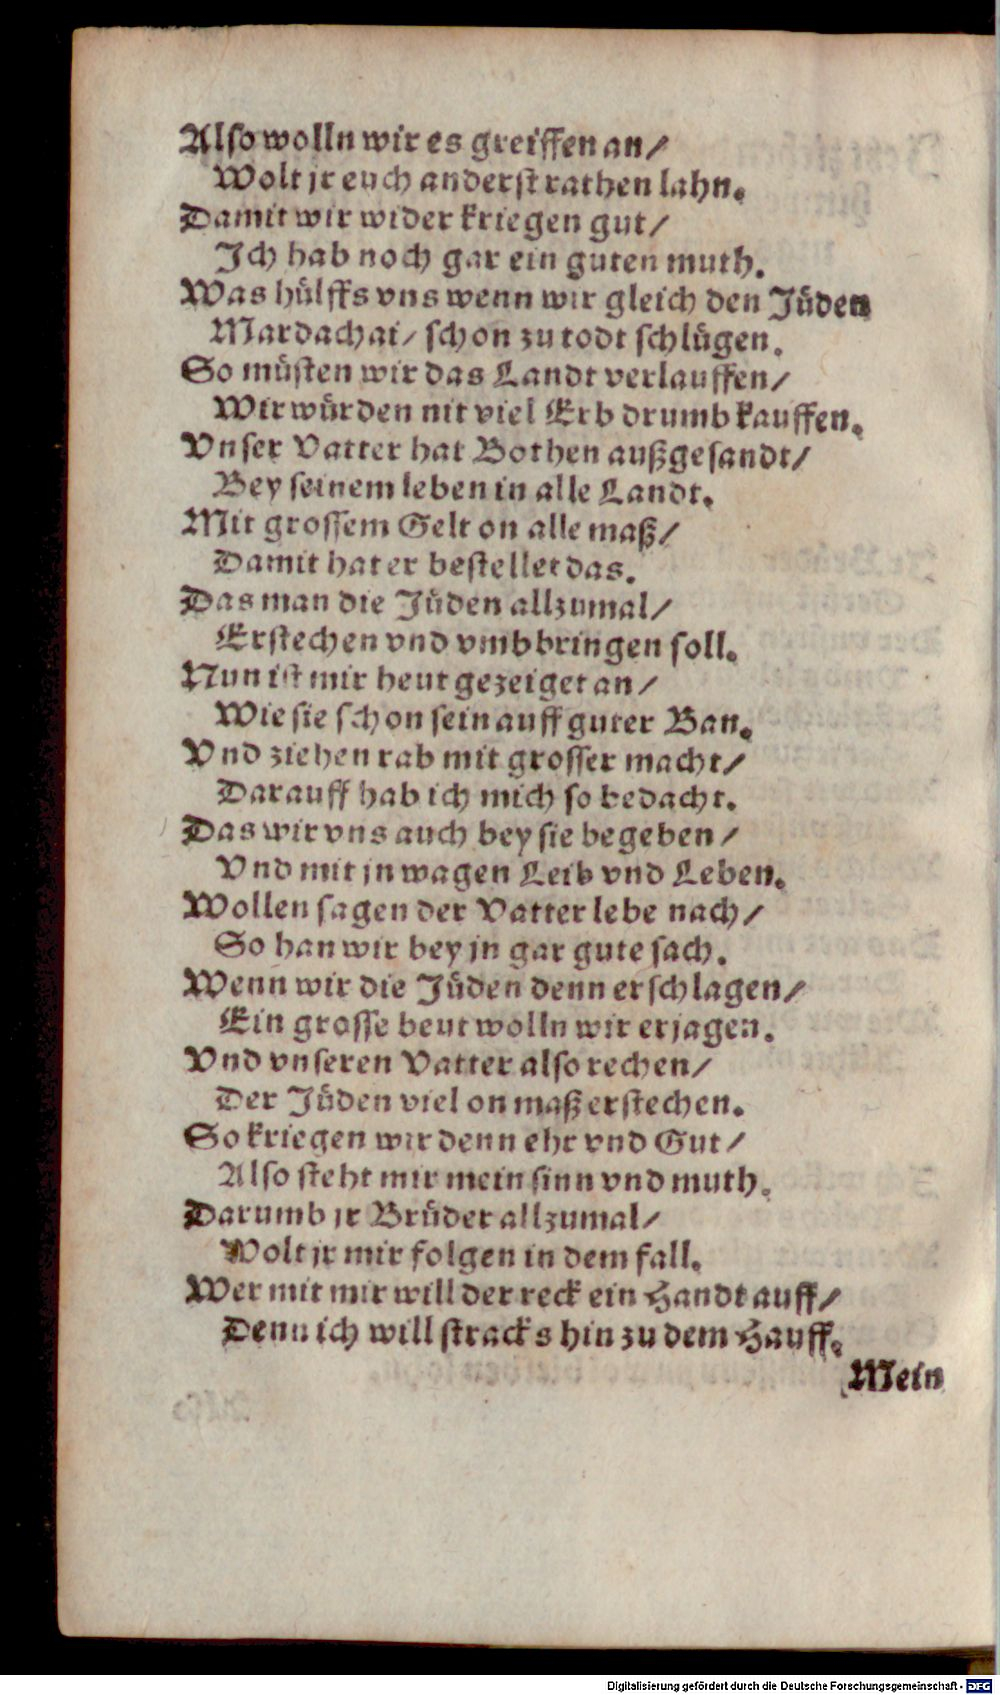 Also wolln wir es greiffen an/
Wolt jr euch anderst rathen lahn.
Damit wir wider kriegen gut/
Ich hab noch gar ein guten muth.
Was hülffs vns wenn wir gleich den Jüden
Mardachai/ schon zu todt schlügen.
So müsten wir das Landt verlauffen/
Wir würden nit viel Erb drumb kauffen.
Vnser Vatter hat Bothen außgesandt/
Bey seinem leben in alle Landt.
Mit grossem Gelt on alle maß/
Damit hat er bestellet das.
Das man die Jüden allzumal/
Erstechen vnd vmbbringen soll.
Nun ist mir heut gezeiget an/
Wie sie schon sein auff guter Ban.
Vnd ziehen rab mit grosser macht/
Darauff hab ich mich so bedacht.
Das wir vns auch bey sie begeben/
Vnd mit jn wagen Leib vnd Leben.
Wollen sagen der Vatter lebe nach/
So han wir bey jn gar gute sach.
Wenn wir die Jüden denn erschlagen/
Ein grosse beut wolln wir erjagen.
Vnd vnseren Vatter also rechen/
Der Jüden viel on maß erstechen.
So kriegen wir denn ehr vnd Gut/
Also steht mir mein sinn vnd muth.
Darumb jr Brüder allzumal/
Wolt jr mir folgen in dem fall.
Wer mit mir will der reck ein Handt auff/
Denn ich will stracks hin zu dem Hauff.
Mein
Digitalisierung gefördert durch die Deutsche Forschungsgemeinschaft - DFG